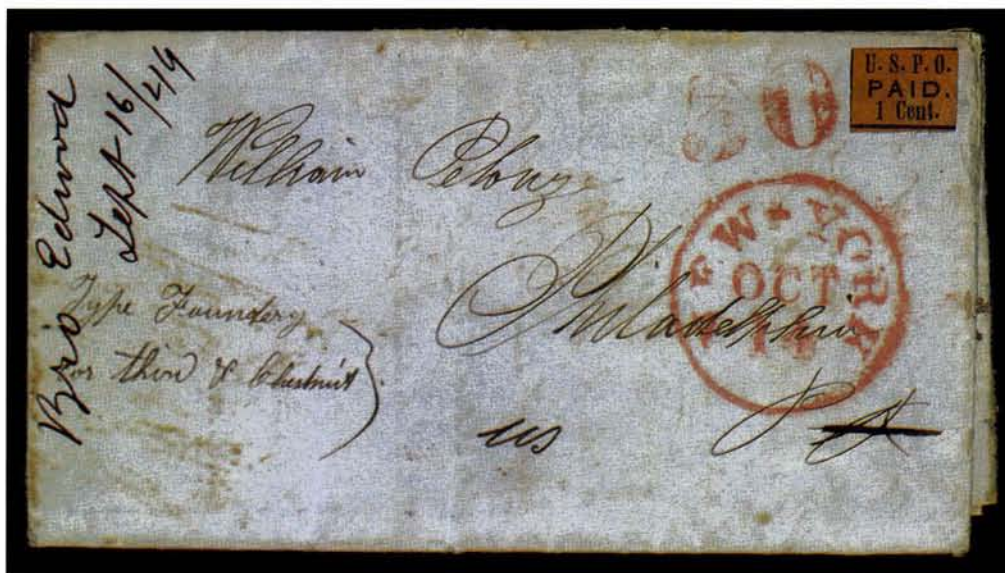 Brig Edwood
Sept 16/49
William Pelouze
Type Foundery
Cor third & Chesnut
Philadelphia
us
Pa
20
U. S. P. O.
PAID.
1 Cent.
NEW YORK
OCT